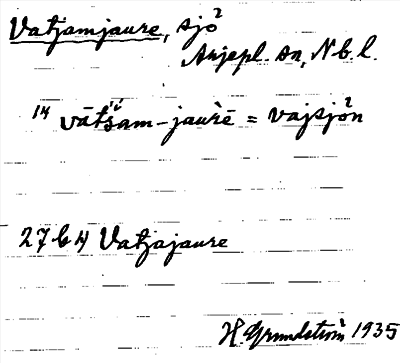 Vatjamjaure, sjö
Arjepl. sn, Nb. l.
14 vātšam-jaurē = vajsjön
27 b 14 Vatjajaure
H Grundström 1935